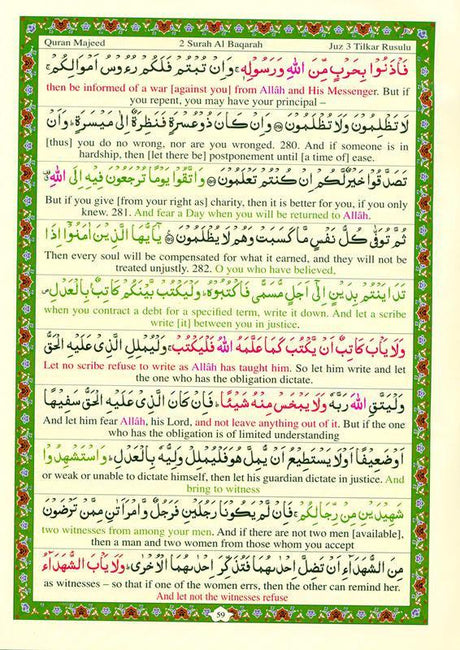 Quran Majeed 2 Surah Al Baqarah Juz 3 Tilkar Rusulu
فَأْذَنُوا بِحَرْبٍ مِّنَ اللّٰهِ وَرَسُولِهٖ ۚ وَاِنْ تُبْتُمْ فَلَكُمْ رُءُوْسُ اَمْوَالِكُمْ ۚ
then be informed of a war [against you] from Allâh and His Messenger. But if
you repent, you may have your principal –
لَا تَظْلِمُوْنَ وَلَا تُظْلَمُوْنَ ۝ وَاِنْ كَانَ ذُوْ عُسْرَةٍ فَنَظِرَةٌ اِلٰى مَيْسَرَةٍ ۚ وَاَنْ
[thus] you do no wrong, nor are you wronged. 280. And if someone is in
hardship, then [let there be] postponement until [a time of] ease.
تَصَدَّقُوْا خَيْرٌ لَّكُمْ اِنْ كُنْتُمْ تَعْلَمُوْنَ ۝ وَاتَّقُوْا يَوْمًا تُرْجَعُوْنَ فِيْهِ اِلَى اللّٰهِ ۗ
But if you give [from your right as] charity, then it is better for you, if you only
knew. 281. And fear a Day when you will be returned to Allâh.
ثُمَّ تُوَفّٰى كُلُّ نَفْسٍ مَّا كَسَبَتْ وَهُمْ لَا يُظْلَمُوْنَ ۝ يٰٓاَيُّهَا الَّذِيْنَ اٰمَنُوْٓا اِذَا
Then every soul will be compensated for what it earned, and they will not be
treated unjustly. 282. O you who have believed,
تَدَايَنْتُمْ بِدَيْنٍ اِلٰٓى اَجَلٍ مُّسَمًّى فَاكْتُبُوْهُ ۚ وَلْيَكْتُبْ بَّيْنَكُمْ كَاتِبٌۢ بِالْعَدْلِ ۠
when you contract a debt for a specified term, write it down. And let a scribe
write [it] between you in justice.
وَلَا يَأْبَ كَاتِبٌ اَنْ يَّكْتُبَ كَمَا عَلَّمَهُ اللّٰهُ فَلْيَكْتُبْ ۚ وَلْيُمْلِلِ الَّذِيْ عَلَيْهِ الْحَقُّ
Let no scribe refuse to write as Allâh has taught him. So let him write and let
the one who has the obligation dictate.
وَلْيَتَّقِ اللّٰهَ رَبَّهٗ وَلَا يَبْخَسْ مِنْهُ شَيْئًا ۚ فَاِنْ كَانَ الَّذِيْ عَلَيْهِ الْحَقُّ سَفِيْهًا
And let him fear Allâh, his Lord, and not leave anything out of it. But if the one
who has the obligation is of limited understanding
اَوْ ضَعِيْفًا اَوْ لَا يَسْتَطِيْعُ اَنْ يُّمِلَّ هُوَ فَلْيُمْلِلْ وَلِيُّهٗ بِالْعَدْلِ ۚ وَاسْتَشْهِدُوْا
or weak or unable to dictate himself, then let his guardian dictate in justice. And
bring to witness
شَهِيْدَيْنِ مِنْ رِّجَالِكُمْ ۚ فَاِنْ لَّمْ يَكُوْنَا رَجُلَيْنِ فَرَجُلٌ وَّامْرَاَتٰنِ مِمَّنْ تَرْضَوْنَ
two witnesses from among your men. And if there are not two men [available],
then a man and two women from those whom you accept
مِنَ الشُّهَدَآءِ اَنْ تَضِلَّ اِحْدٰىهُمَا فَتُذَكِّرَ اِحْدٰىهُمَا الْاُخْرٰى ۚ وَلَا يَأْبَ الشُّهَدَآءُ
as witnesses – so that if one of the women errs, then the other can remind her.
And let not the witnesses refuse
59